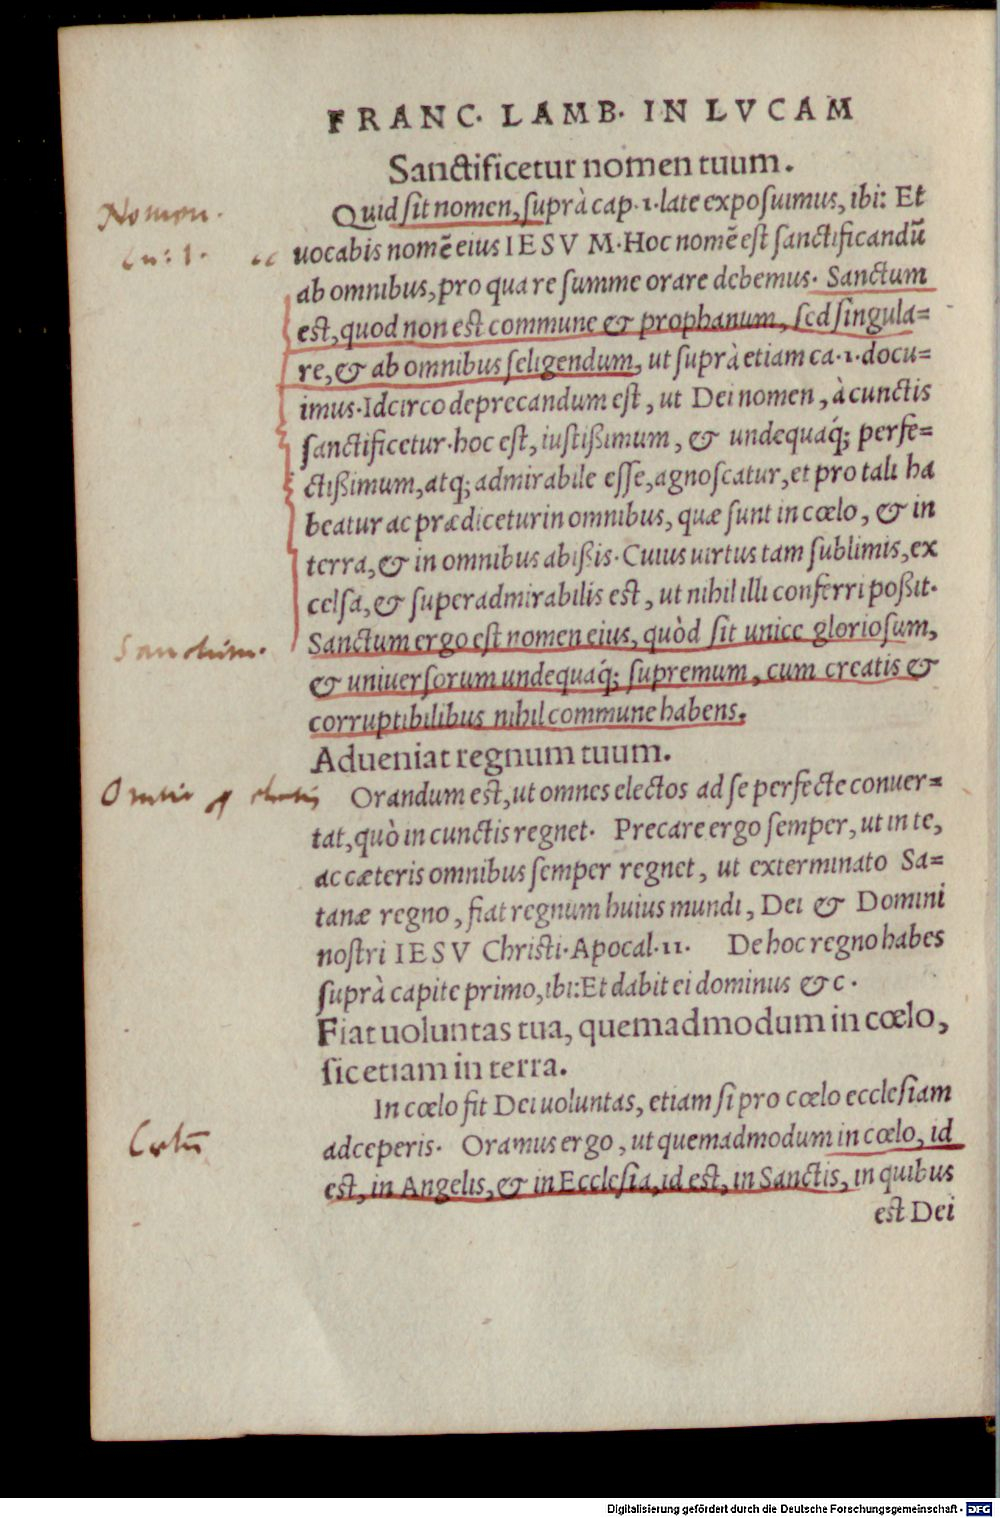 FRANC. LAMB. IN LVCAM
Sanctificetur nomen tuum.
Nomen.
Quid sit nomen, suprà cap. 1. late exposuimus, ibi: Et
Lu: 1.
uocabis nomẽ eius IESV M. Hoc nomẽ est sanctificandũ
ab omnibus, pro qua re summe orare debemus. Sanctum
est, quod non est commune & prophanum, sed singula=
re, & ab omnibus seligendum, ut suprà etiam ca. 1. docu=
imus. Idcirco deprecandum est, ut Dei nomen, à cunctis
sanctificetur. hoc est, iustißimum, & undequaq́; perfe=
ctißimum, atq; admirabile esse, agnoscatur, et pro tali ha
beatur ac prædicetur in omnibus, quæ sunt in cœlo, & in
terra, & in omnibus abißis. Cuius uirtus tam sublimis, ex
celsa, & superadmirabilis est, ut nihil illi conferri poßit.
Sanctum.
Sanctum ergo est nomen eius, quòd sit unice gloriosum,
& uniuersorum undequaq́; supremum, cum creatis &
corruptibilibus nihil commune habens.
Adueniat regnum tuum.
Orandum est, ut omnes electos ad se perfecte conuer=
tat, quò in cunctis regnet. Precare ergo semper, ut in te,
ac cæteris omnibus semper regnet, ut exterminato Sa=
tanæ regno, fiat regnum huius mundi, Dei & Domini
nostri IESV Christi. Apocal. 11. De hoc regno habes
suprà capite primo, ibi: Et dabit ei dominus &c.
Fiat uoluntas tua, quemadmodum in cœlo,
sic etiam in terra.
In cœlo fit Dei uoluntas, etiam si pro cœlo ecclesiam
Cœlũ
adceperis. Oramus ergo, ut quemadmodum in cœlo, id
est, in Angelis, & in Ecclesia, id est, in Sanctis, in quibus
est Dei
Digitalisierung gefördert durch die Deutsche Forschungsgemeinschaft - DFG